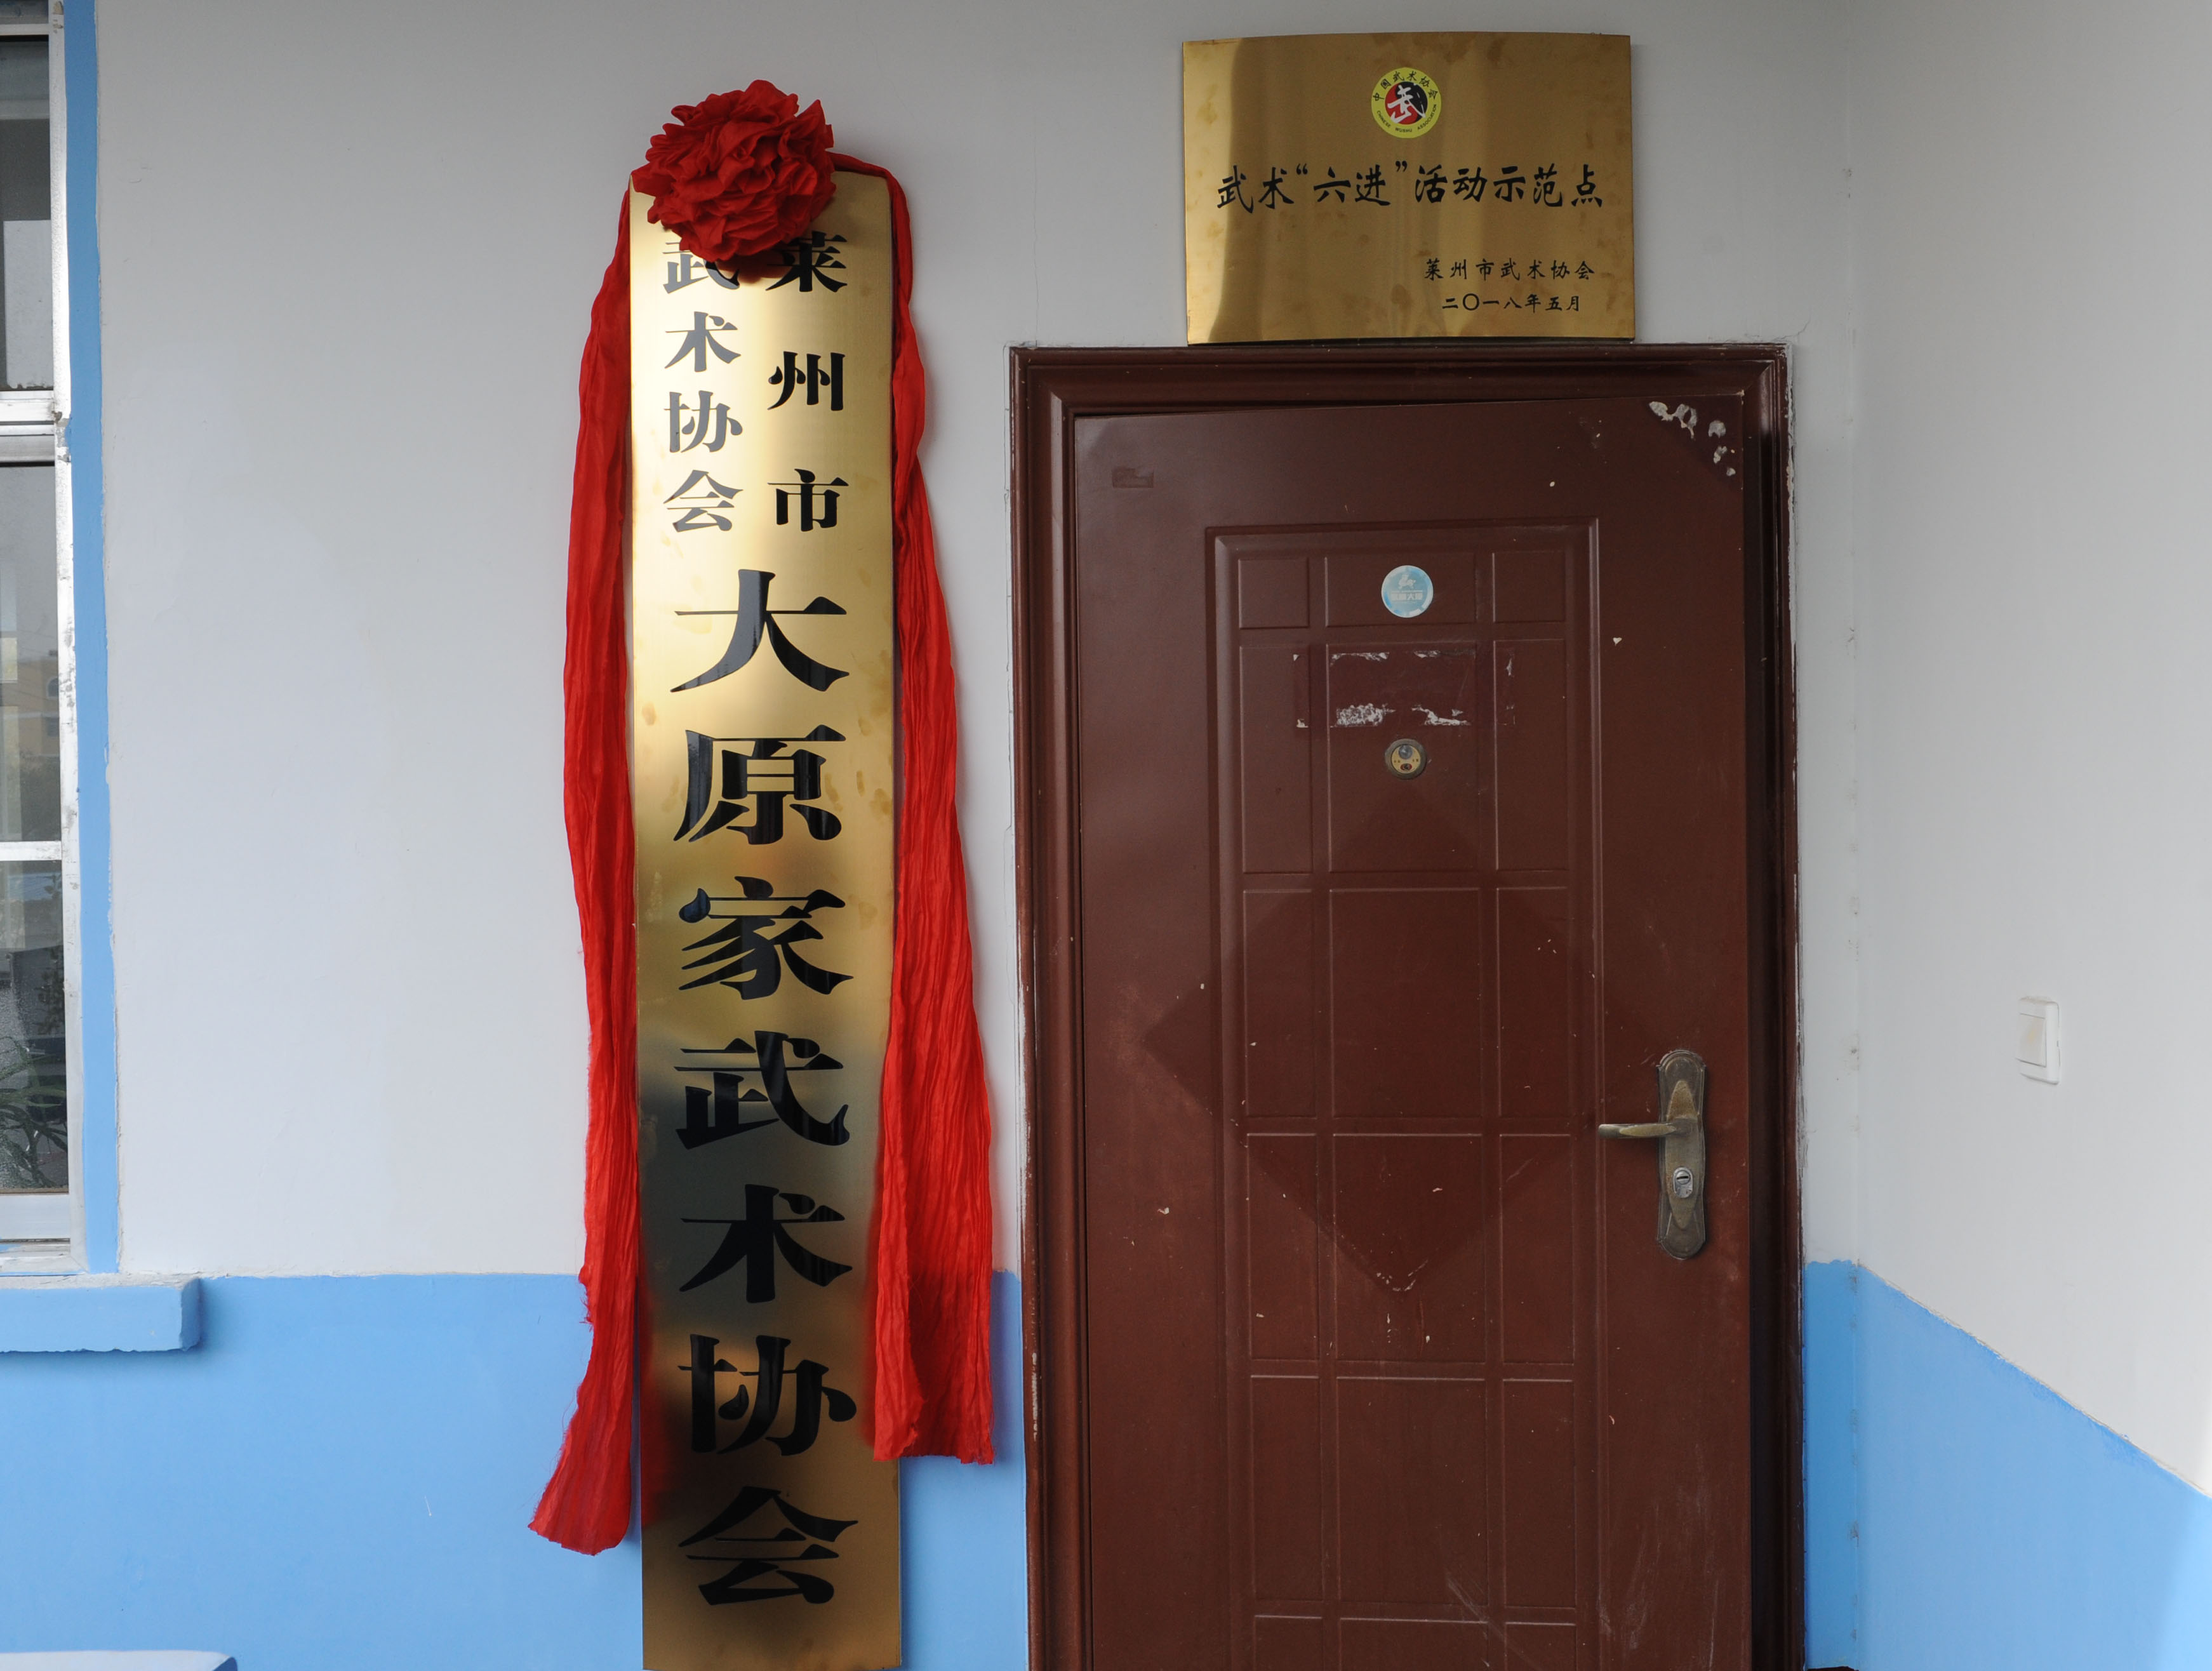 莱州市
武术协会
大原家武术协会
中国武术协会
武
CHINESE WUSHU ASSOCIATION
武术“六进”活动示范点
莱州市武术协会
二〇一八年五月